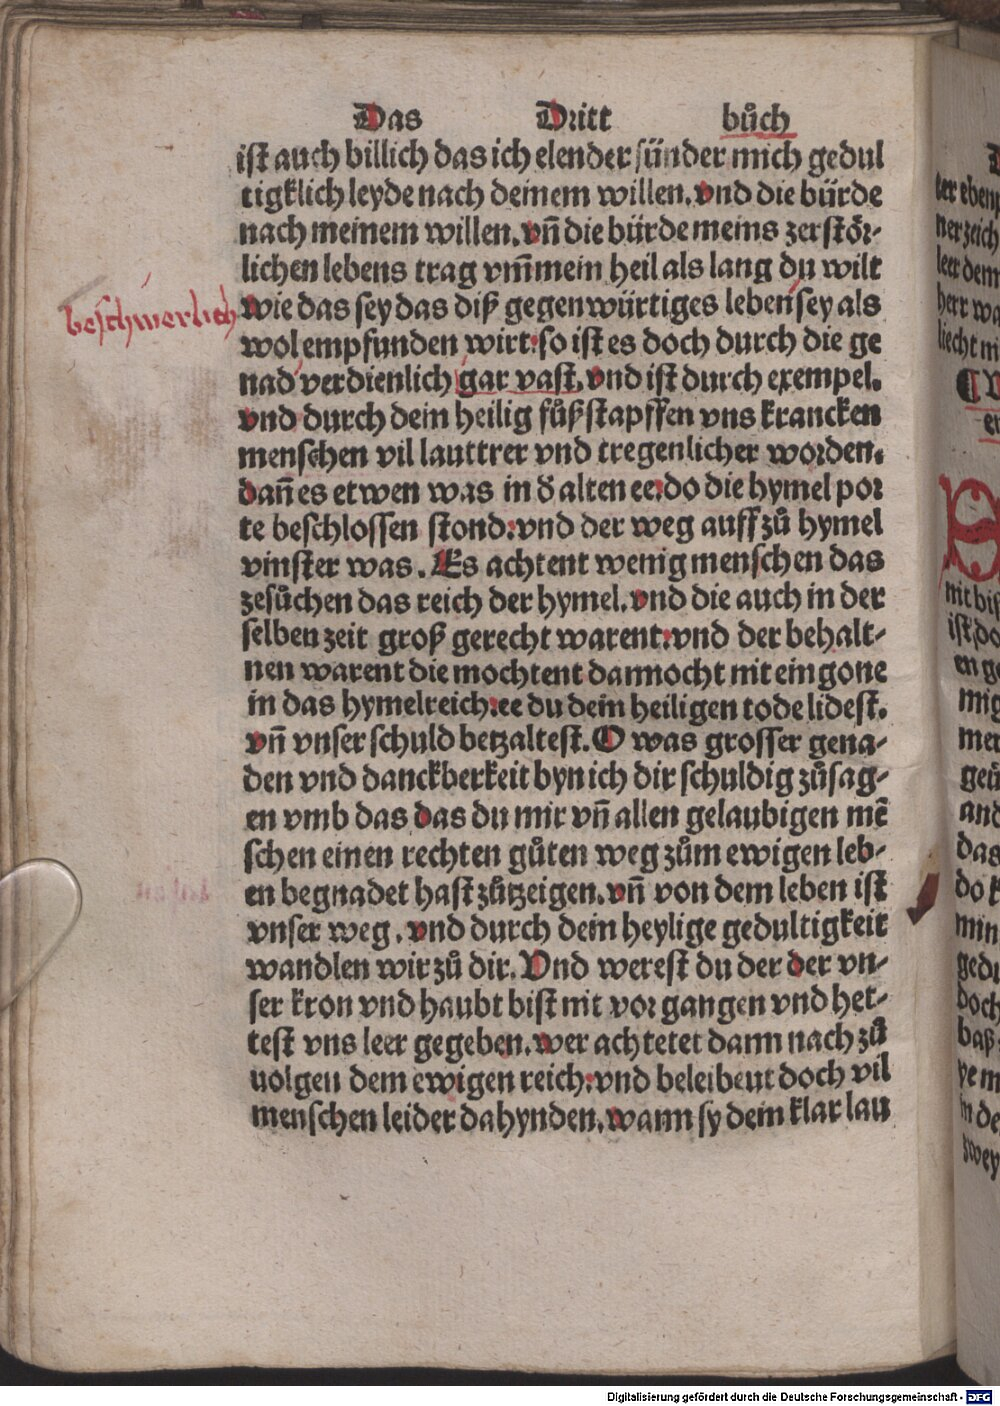 Das Dritt bůch
ist auch billich das ich elender sünder mich gedul
tigklich leyde nach deinem willen. vnd die bürde
nach meinem willen. vn̄ die bürde meins zerstör-
lichen lebens trag vm̄ mein heil als lang du wilt
beschwerlich
wie das sey das diß gegenwürtiges leben sey als
wol empfunden wirt: so ist es doch durch die ge
nad verdienlich gar vast. vnd ist durch exempel.
vnd durch dein heilig fůßstapffen vns krancken
menschen vil lauttrer vnd tregenlicher worden.
dan̄ es etwen was in d̕ alten ee: do die hymel por
te beschlossen stond: vnd der weg auff zů hymel
vinster was. Es achtent wenig menschen das
zesůchen das reich der hymel. vnd die auch in der
selben zeit groß gerecht warent: vnd der behalt-
nen warent die mochtent dannocht nit ein gone
in das hymelreich: ee du dein heiligen tode lidest.
vn̄ vnser schuld betzaltest. O was grosser gena-
den vnd danckberkeit byn ich dir schuldig zůsag-
en vmb das das du mir vn̄ allen gelaubigen mē
schen einen rechten gůten weg zům ewigen leb-
en begnadet hast zůtzeigen. vn̄ von dem leben ist
vnser weg. vnd durch dein heylige gedultigkeit
wandlen wir zů dir. Vnd werest du der der vn-
ser kron vnd haubt bist nit vor gangen vnd het-
test vns leer gegeben. wer achtetet dann nach zů
uolgen dem ewigen reich: vnd beleibent doch vil
menschen leider dahynden. wann sy dein klar lau
ter eben
ner zeich
leer dem
herr wa
liecht ni
nit bis
ist do
en ge
mig
mer
geů
and
das
do k
min
gedu
doch
baß
ye m
in de
zwey
Digitalisierung gefördert durch die Deutsche Forschungsgemeinschaft - DFG